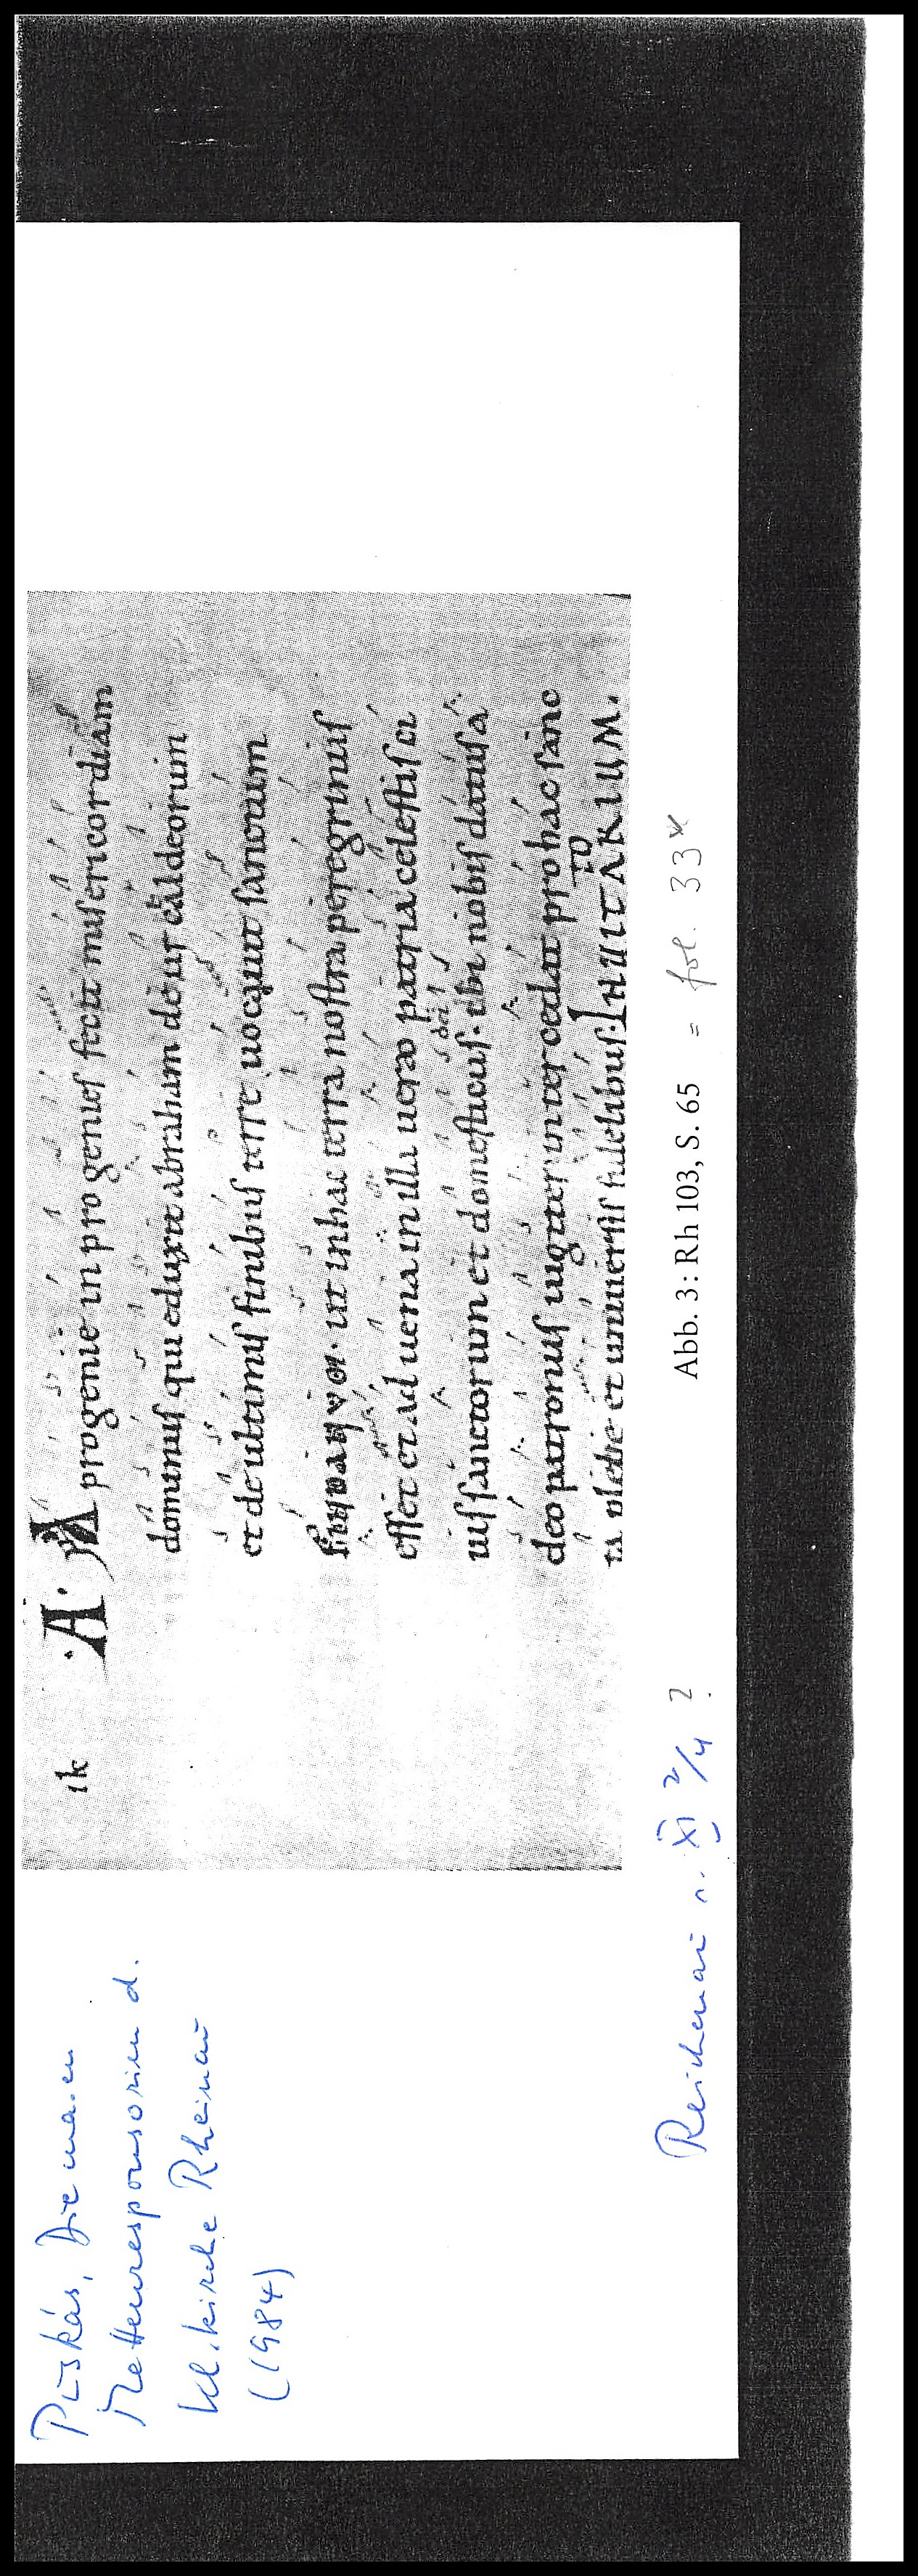 Puskás, Die ma.en
Mettenresponsorien d.
Kl.kirche Rheinau
(1984)
ik ·A· A progenie in progenies fecit misericordiam
dominus qui eduxit abraham de ur caldeorum
et de ultimis finibus terre uocauit sanctum
ut in hac terra nostra peregrinus
esset et aduena in illa uero patria celestis ci
uis sanctorum et domesticus dei· ubi nobis datus a
deo patronus iugiter intercedat pro hac sanc
ta plebe et uniuersis fidelibus INUITATORIUM.
Reichenau n. XI 2/4 ? Abb. 3: Rh 103, S. 65 = fol. 33v